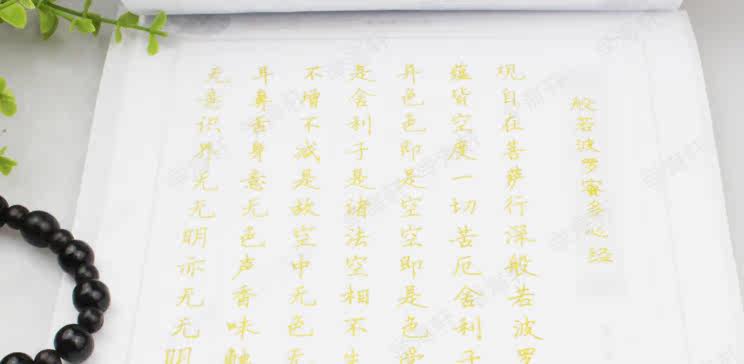 般若波罗蜜多心经
观自在菩萨行深般若波罗
蕴皆空度一切苦厄舍利子
异色色即是空空即是色受
是舍利子是诸法空相不生
不增不减是故空中无色无
耳鼻舌身意无色声香味触
无意识界无无明亦无无明